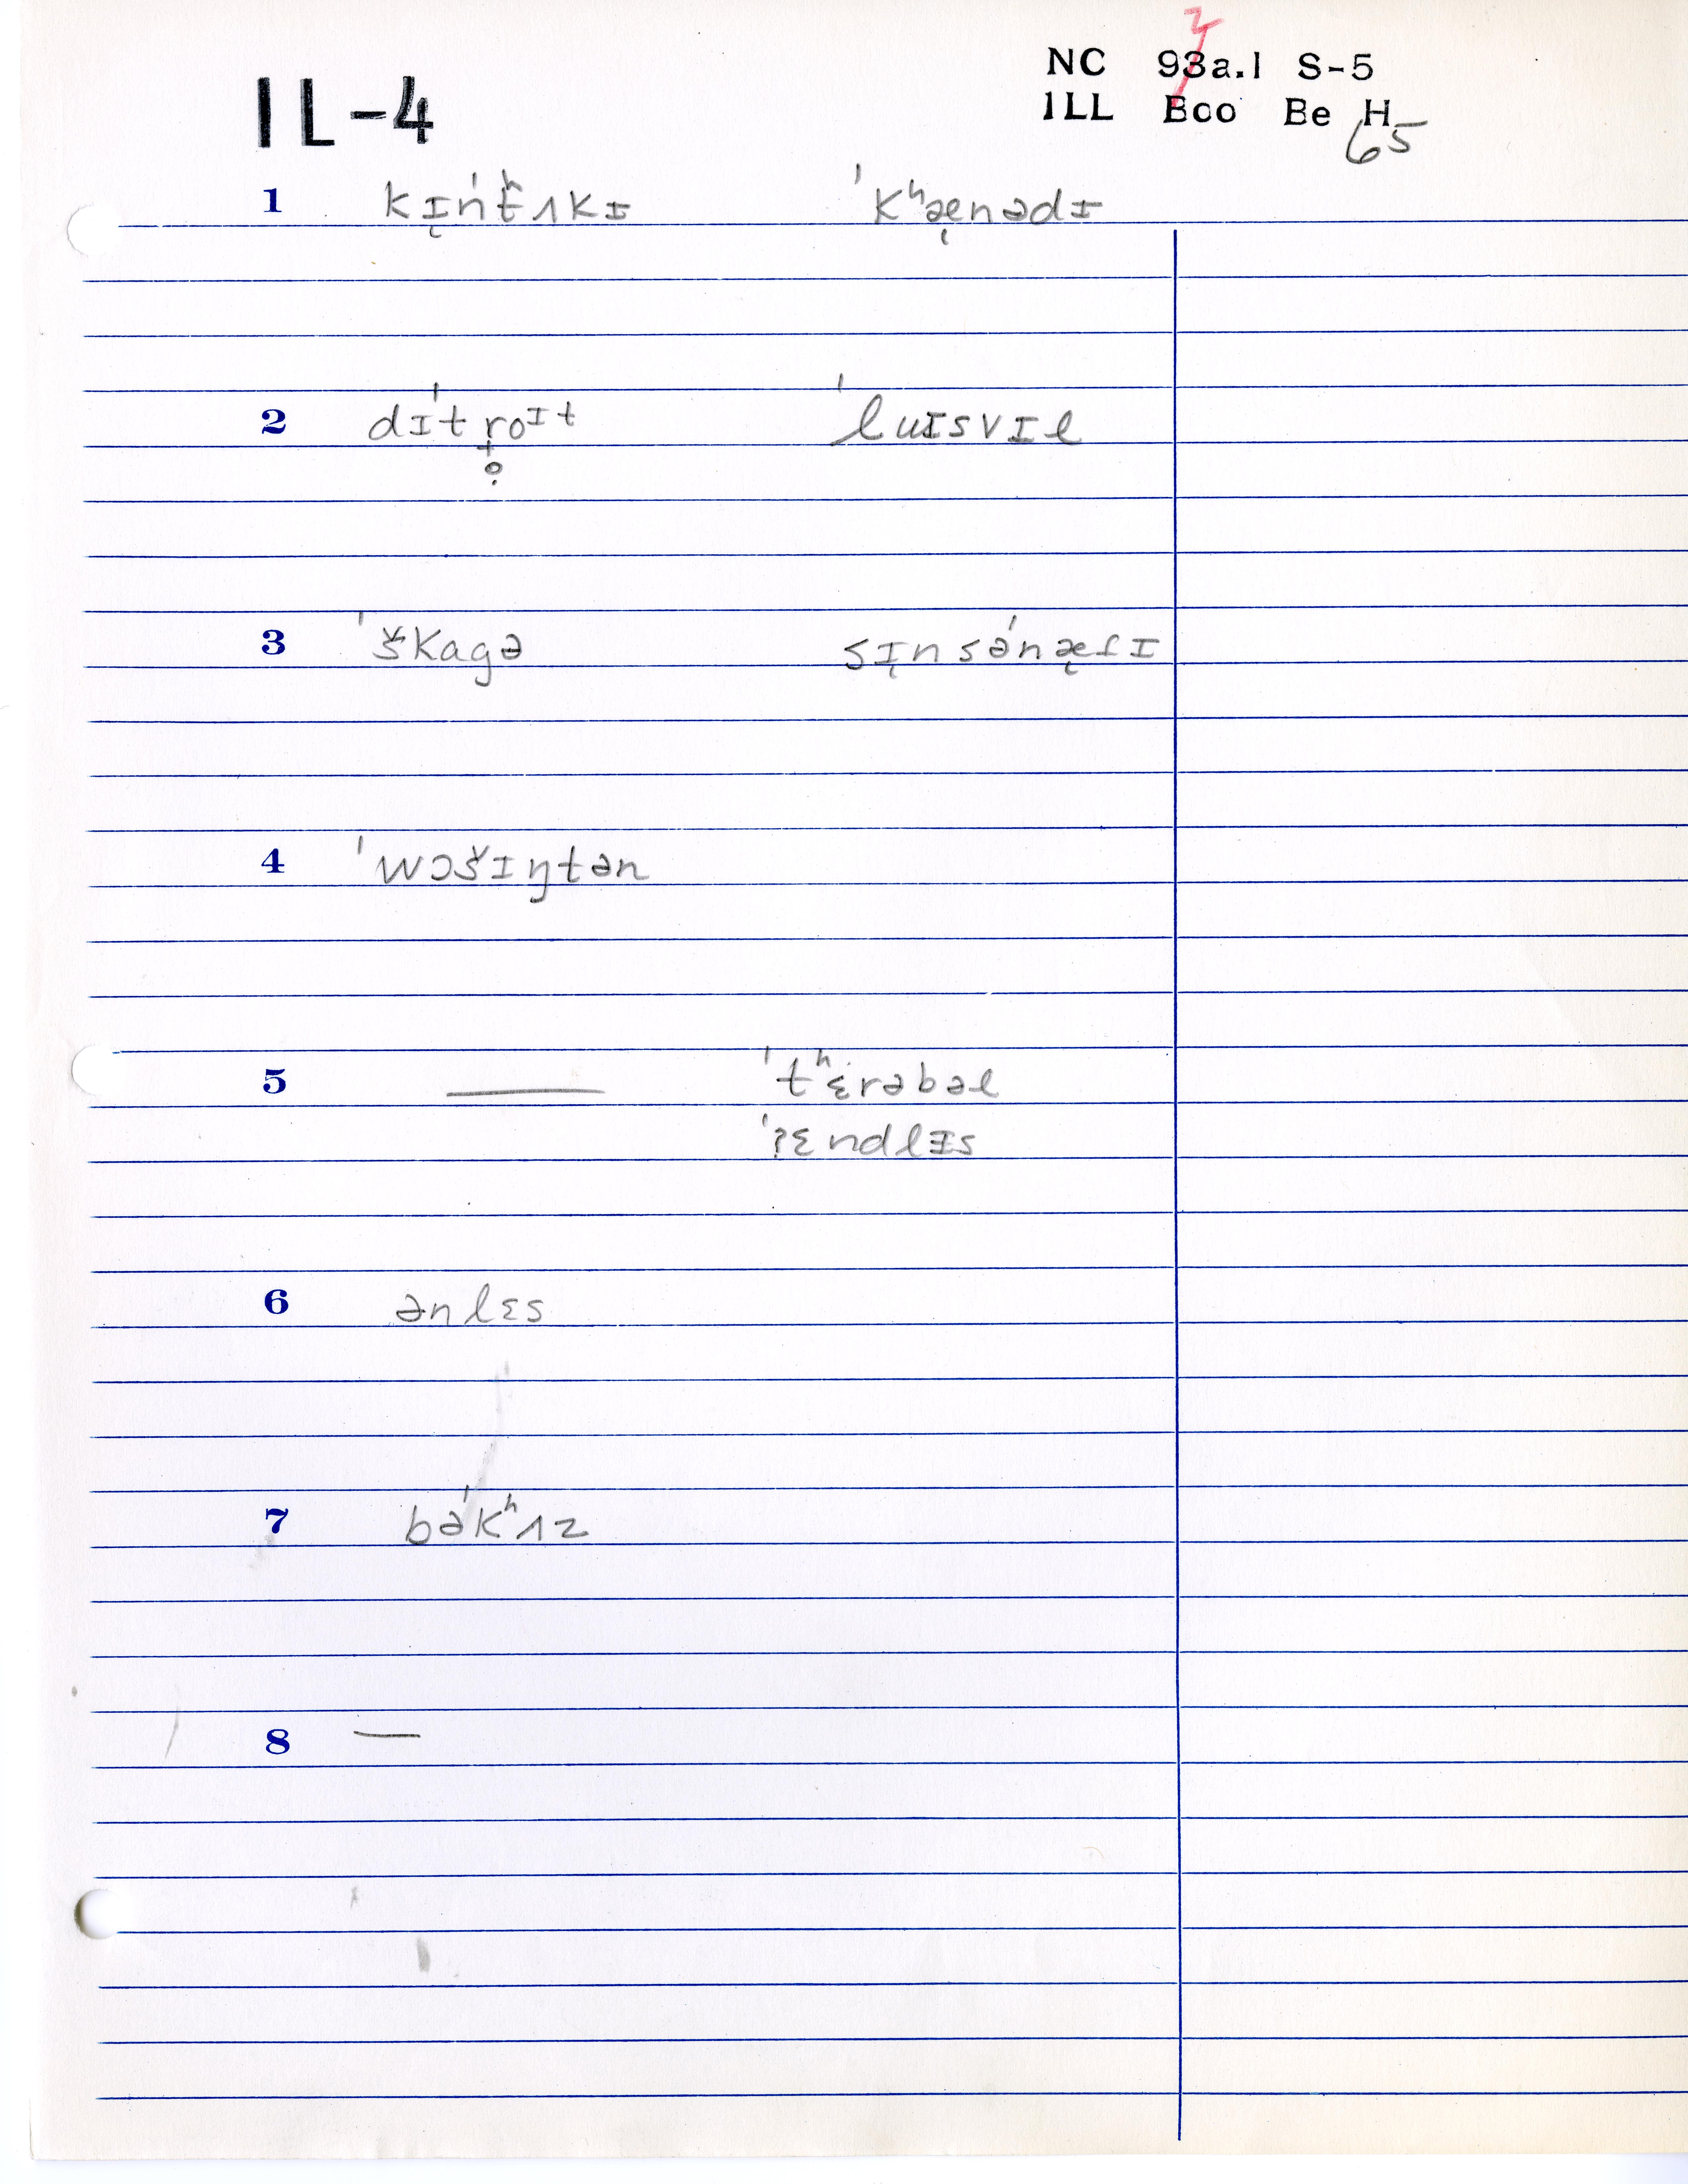 IL-4
NC 93a.1 S-5
ILL Bco Be H
65
1 kɪ̨n'tʰʌkɪ 'kʰæ̨nədɪ
2 dɪ'troɪt 'luɪsvɪl
3 'škagə sɪ̨nsə'næ̨ɾɪ
4 'wɔšɪŋtən
5 — 'tʰɛrəbəl
'ʔɛndlɪs
6 ənlɛs
7 bə'kʰʌz
8 —